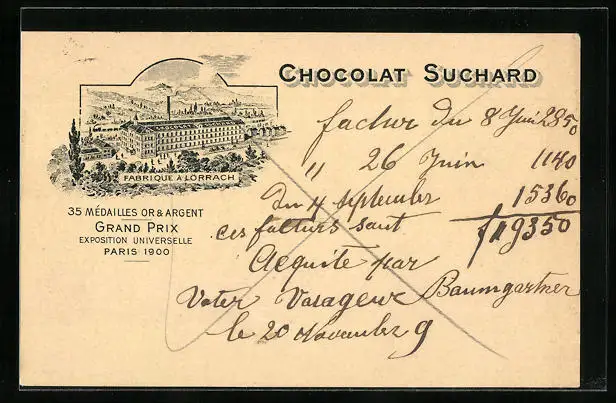 CHOCOLAT SUCHARD
FABRIQUE À LÖRRACH
35 MÉDAILLES OR & ARGENT
GRAND PRIX
EXPOSITION UNIVERSELLE
PARIS 1900
factur du 8 Juin 2850
" 26 Juin 1140
du 4 september 15360
ces facturs sont 19350
Acquite par
Voter Voyageur Baumgartner
le 20 November 9